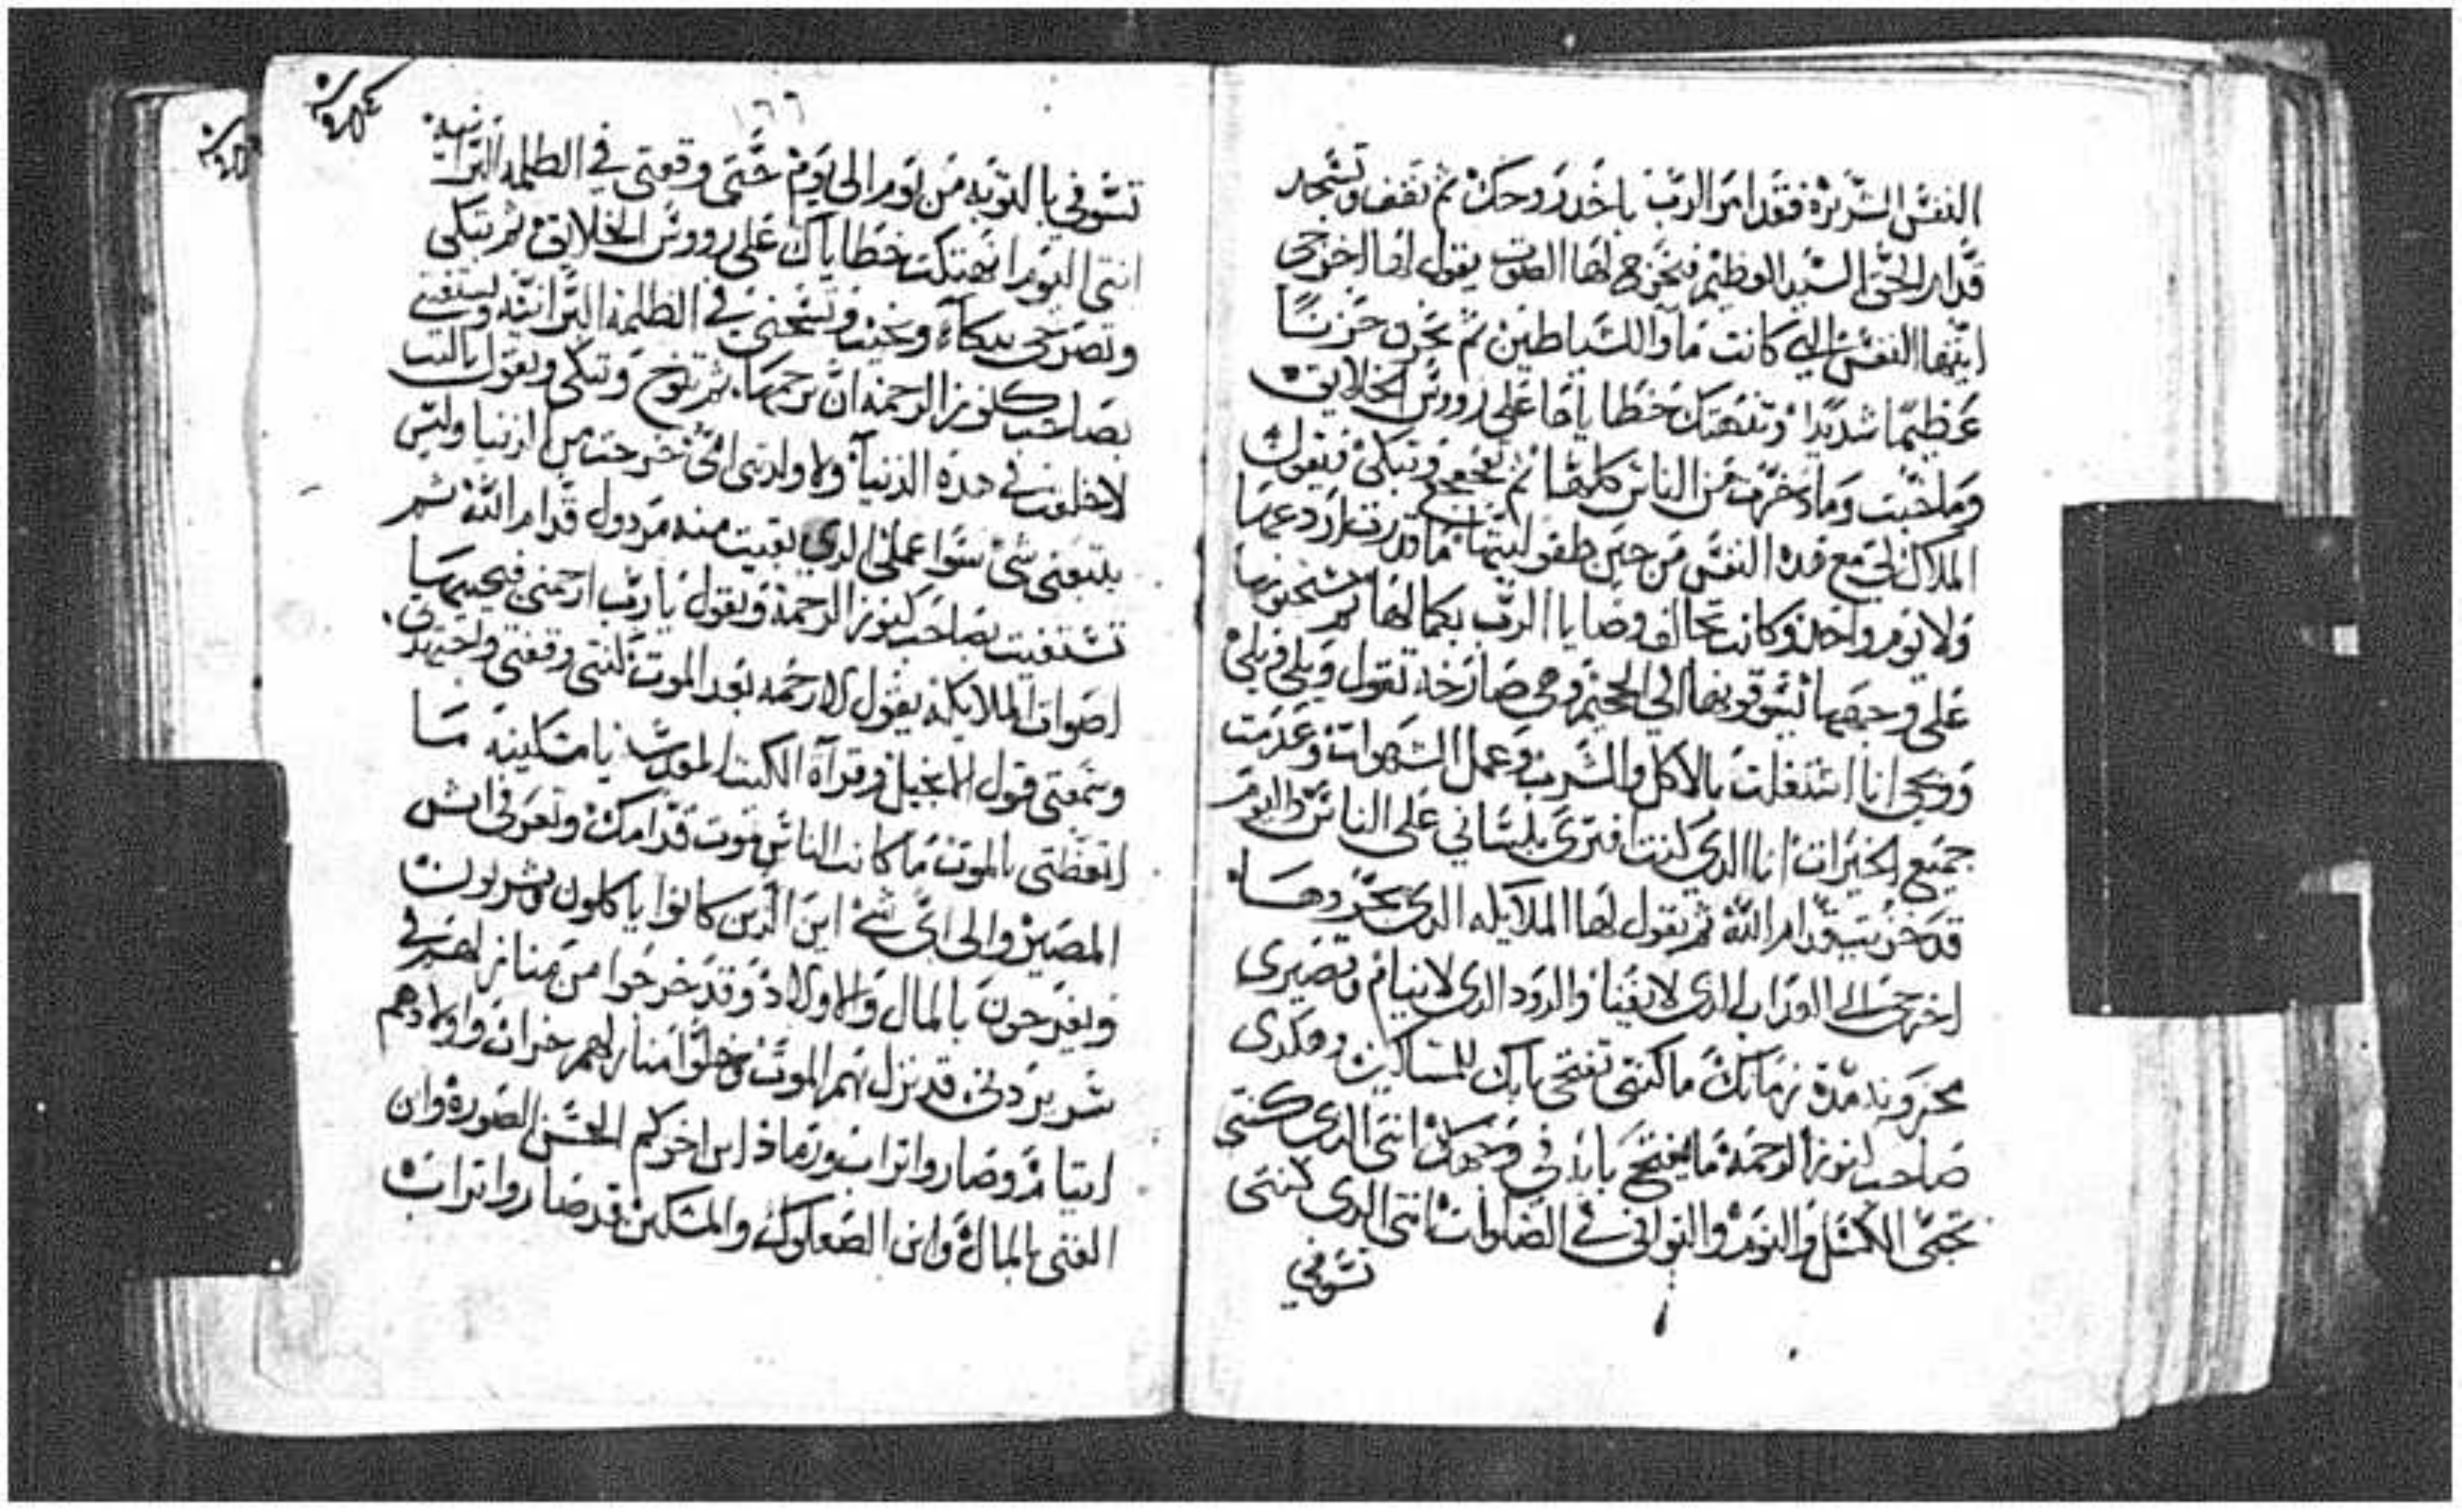 النفس الشريره فقد امر الرب باخد روحك ثم تقف وتسجد
قدام الحق السيد العظيم فيخرج لها الصوت يقول لها اخرجي
ايتها النفس التي كانت مآوا للشياطين ثم تحزن حزنًا
عظيمًا شديدًا وتنهتك خطاياها على رووس الخلايق
وما خبت وما دخرت من الناس كلها ثم وتبكي فيقول
الملاك لي مع هده النفس من حين طفوليتها ما قدرت اردعها
ولا يوم واحد وكانت تخالف وصايا الرب بكمالها ثم يسحبونها
على وجهها يسوقونها الى الجحيم وهي صارخه تقول ويلي ويلي
ويحي انا اشتغلت بالاكل والشرب وعمل الشهوات وعدمت
جميع الخيرات انا الدي كنت افتري بلساني على الناس واليوم
قد خزيت قدام الله ثم يقول لها الملايكه الدي يجروها
اخرجي الى العداب الدي لا يفنا والدود الدي لا ينام وتصيري
مدة زمانك ما كنتي تفتحي بابك للمساكين وهكدي
صاحب كنوز الرحمة ما يفتح بابه في وجهك انتي الدي كنتي
تحبي الكسل والنوم والتواني في الصلوات انتي الدي كنتي
تسوفي
١٦٦
تسوفي بالتوبه من يوم الى يوم حتى وقعتي في الظلمه البرانيه
انتي اليوم انهتكت خطاياك على رووس الخلايق ثم تبكي
وتصرخي ببكآء ونحيب وتسجني في الظلمة البرانيه وتستغيث
بصاحب كنوز الرحمة ان يرحمها ثم تنوح وتبكي وتقول ياليت
لا خلقت في هده الدنيا ولا ولدتني امي خرجت من الدنيا وليس
يتبعني شي سوا عملي الدي بقيت منه مردول قدام الله ثم
تستغيث بصاحب كنوز الرحمة وتقول يا رب ارحمني فيجيبها
اصوات الملايكه يقول لا رحمه بعد الموت
وسمعتي قول الانجيل وقرآة الكتب المقدسه يا مسكينه ما
اتعظتي بالموت ما كانت الناس تموت قدامك وتعرفي ايش
المصير والى اي شي اين الدين كانوا ياكلون ويشربون
ويفرحون بالمال والاولاد وقد خرجوا من منازلهم في
قد نزل بهم الموت وخلوا منازلهم خراب واولادهم
ايتام وصاروا تراب ورماد اين اخوكم الحسن الصورة واين
الغني بالمال واين الصعلوك والمسكين قد صاروا تراب